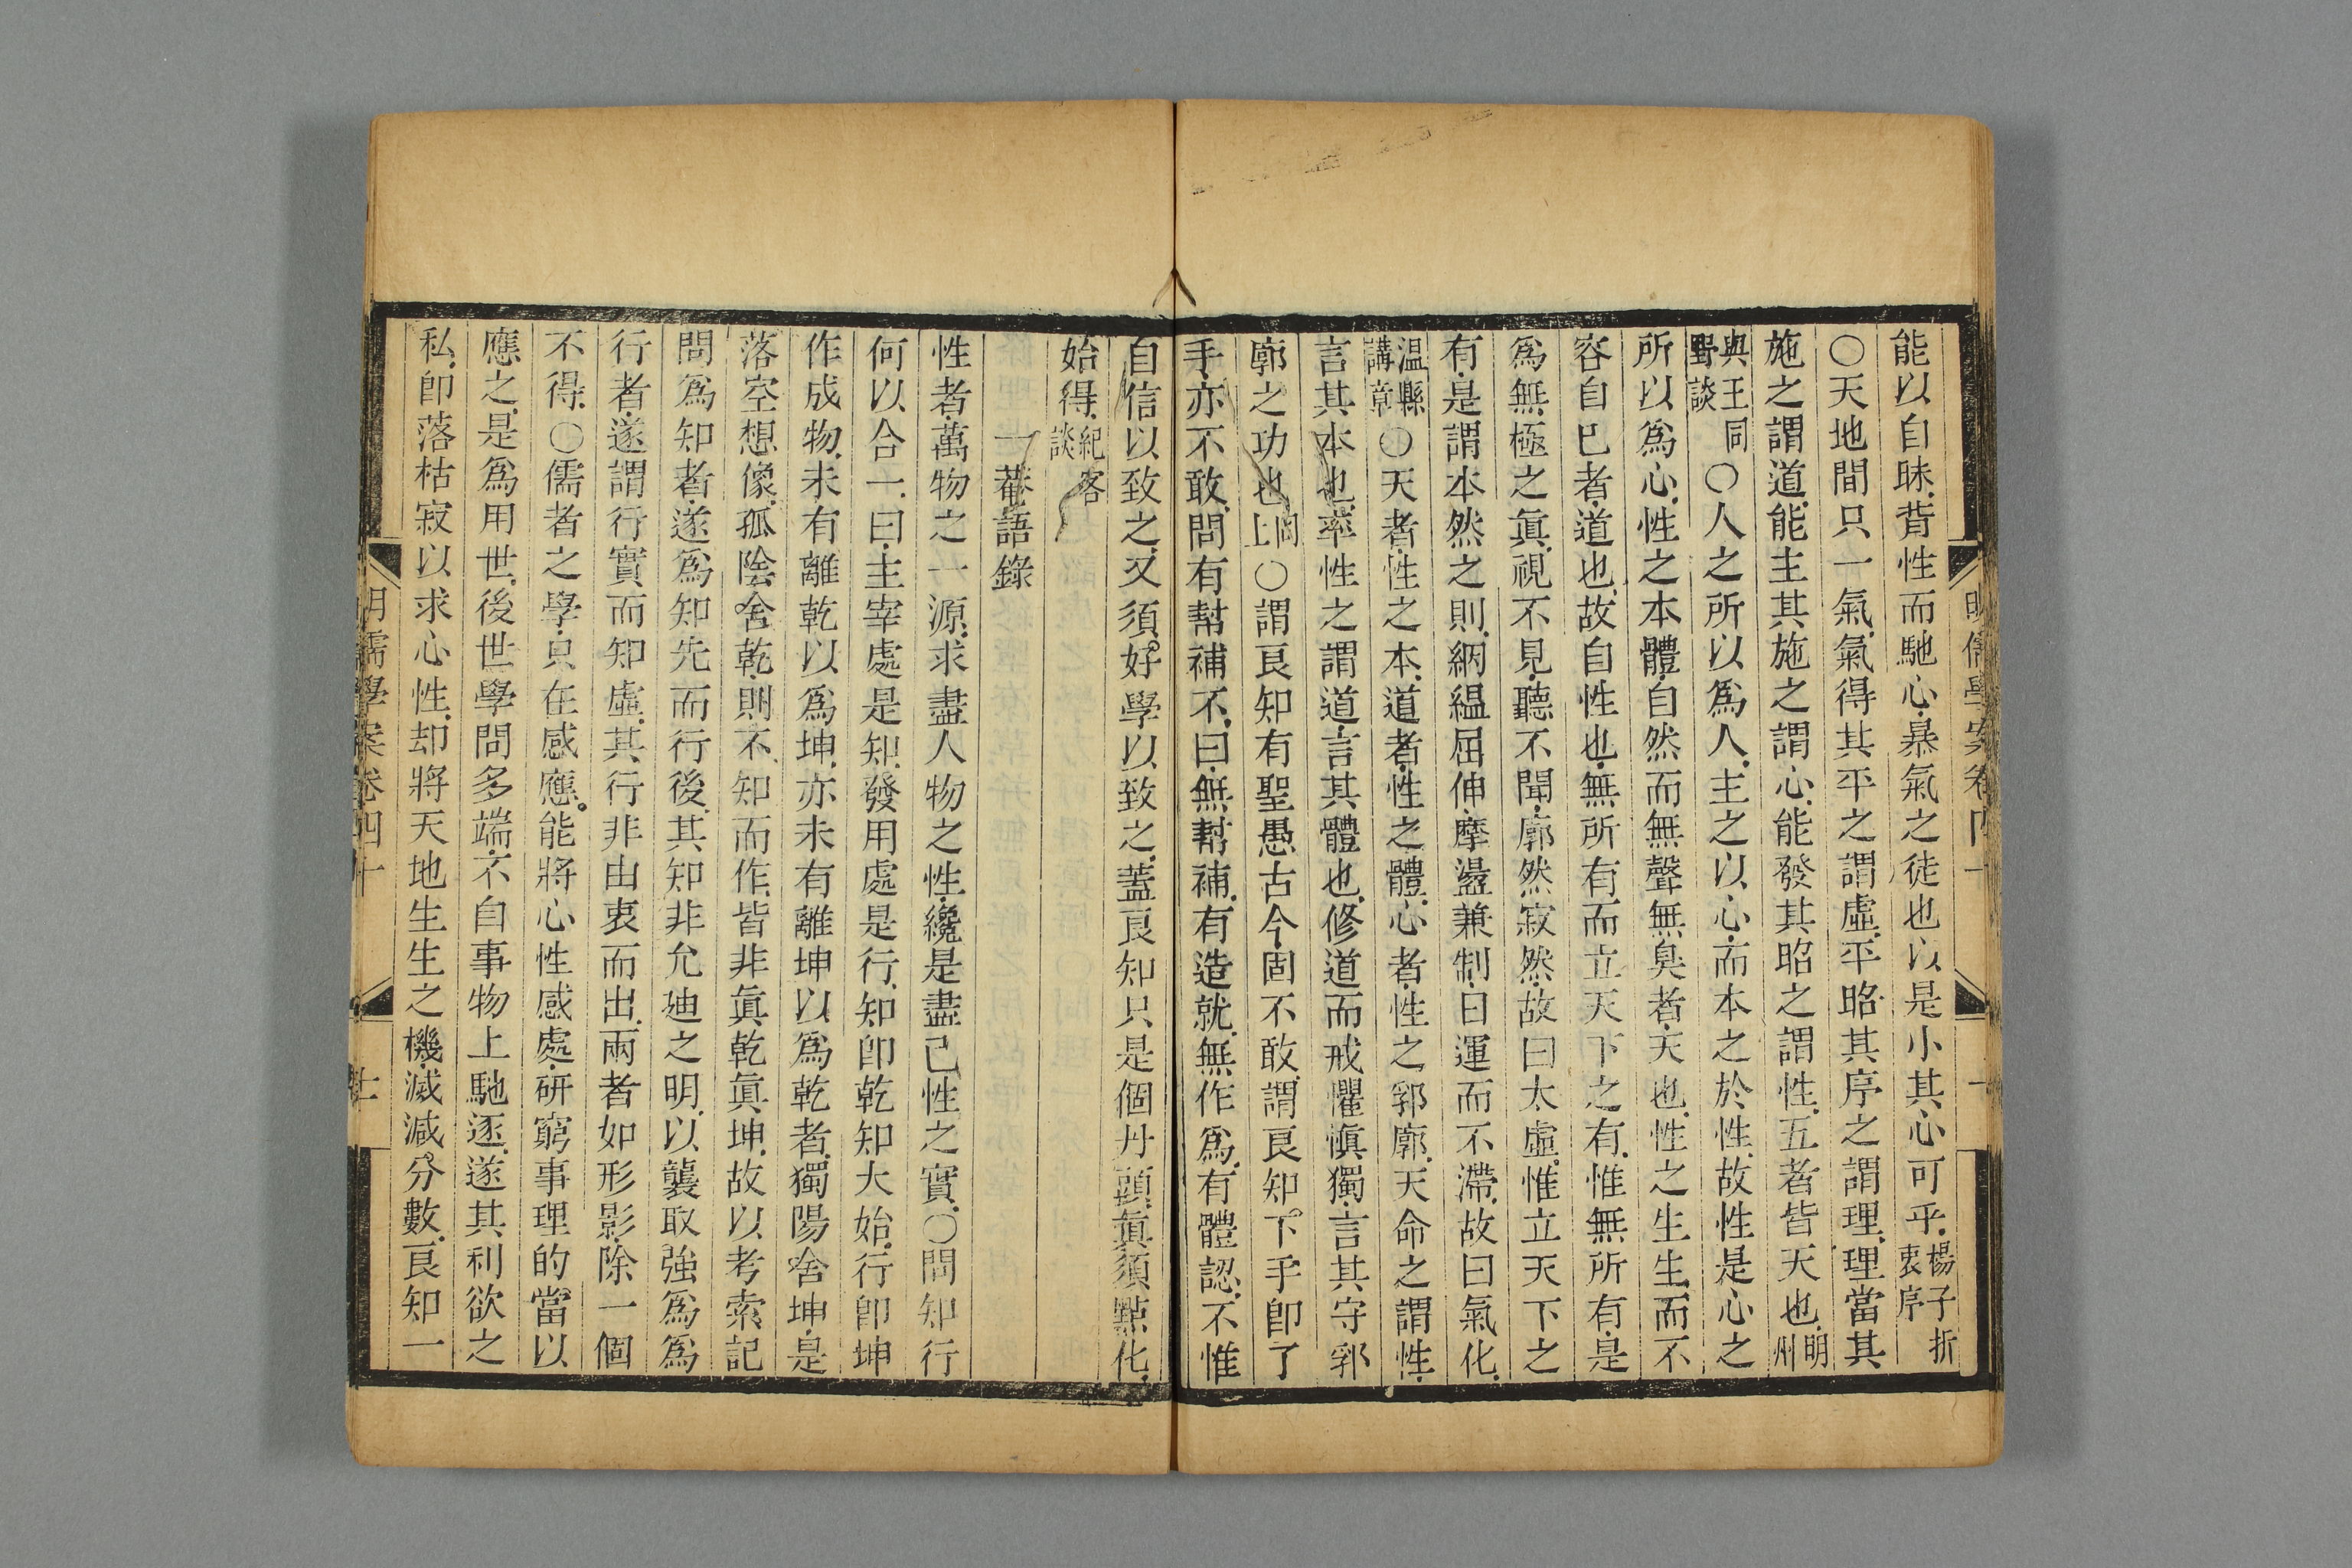 能以自昧背性而馳心暴氣之徒也以是小其心可乎楊子折衷序
〇天地間只一氣氣得其平之謂虛平昭其序之謂理理當其
施之謂道能主其施之謂心能發其昭之謂性五者皆天也明州
與王同野談〇人之所以爲人主之以心而本之於性故性是心之
所以爲心性之本體自然而無聲無臭者天也性之生生而不
容自巳者道也故自性也無所有而立天下之有惟無所有是
爲無極之眞視不見聽不聞廓然寂然故曰太虛惟立天下之
有是謂本然之則絪縕屈伸摩盪兼制日運而不滯故曰氣化
温縣講章〇天者性之本道者性之體心者性之郛廓天命之謂性
言其本也率性之謂道言其體也修道而戒懼愼獨言其守郛
廓之功也同上〇謂良知有聖愚古今固不敢謂良知下手卽了
手亦不敢問有幇補不曰無幇補有造就無作爲有體認不惟
自信以致之又須好學以致之蓋良知只是個丹頭眞須點化
始得紀客談
一菴語錄
性者萬物之一源求盡人物之性纔是盡己性之實〇問知行
何以合一曰主宰處是知發用處是行知卽乾知大始行卽坤
作成物未有離乾以爲坤亦未有離坤以爲乾者獨陽舍坤是
落空想像孤陰舍乾則不知而作皆非眞乾眞坤故以考索記
問爲知者遂爲知先而行後其知非允廸之明以襲取強爲爲
行者遂謂行實而知虛其行非由衷而出兩者如形影除一個
不得〇儒者之學只在感應能將心性感處硏窮事理的當以
應之是爲用世後世學問多端不自事物上馳逐遂其利欲之
私卽落枯寂以求心性却將天地生生之機滅減分數良知一
明儒學案卷四十